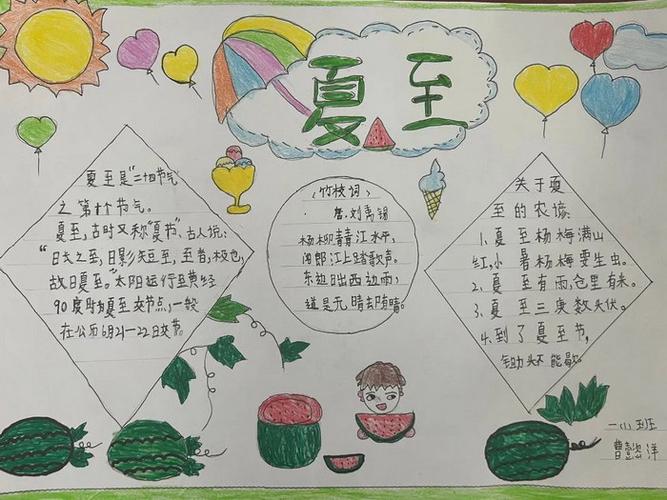 夏至
夏至是"二十四节气
之第十个节气。
夏至，古时又称"夏节"、古人说：
"日长之至，日影矢豆至，至者，极也，
故曰夏至。"太阳运行至黄经
90度时为夏至交节点，一般
在公历6月21—22日交节。
《竹枝词》
唐．刘禹锡
杨柳青青江水平，
闻郎江上踏歌声。
东边日出西边雨，
道是无晴却有晴。
关于夏
至的农谚
1、夏至杨梅满山
红，小暑杨梅要生虫。
2、夏至有雨，仓里有米。
3、夏至三庚数头伏。
4、到了夏至节，
锄头不能歇。
班
曹
洋